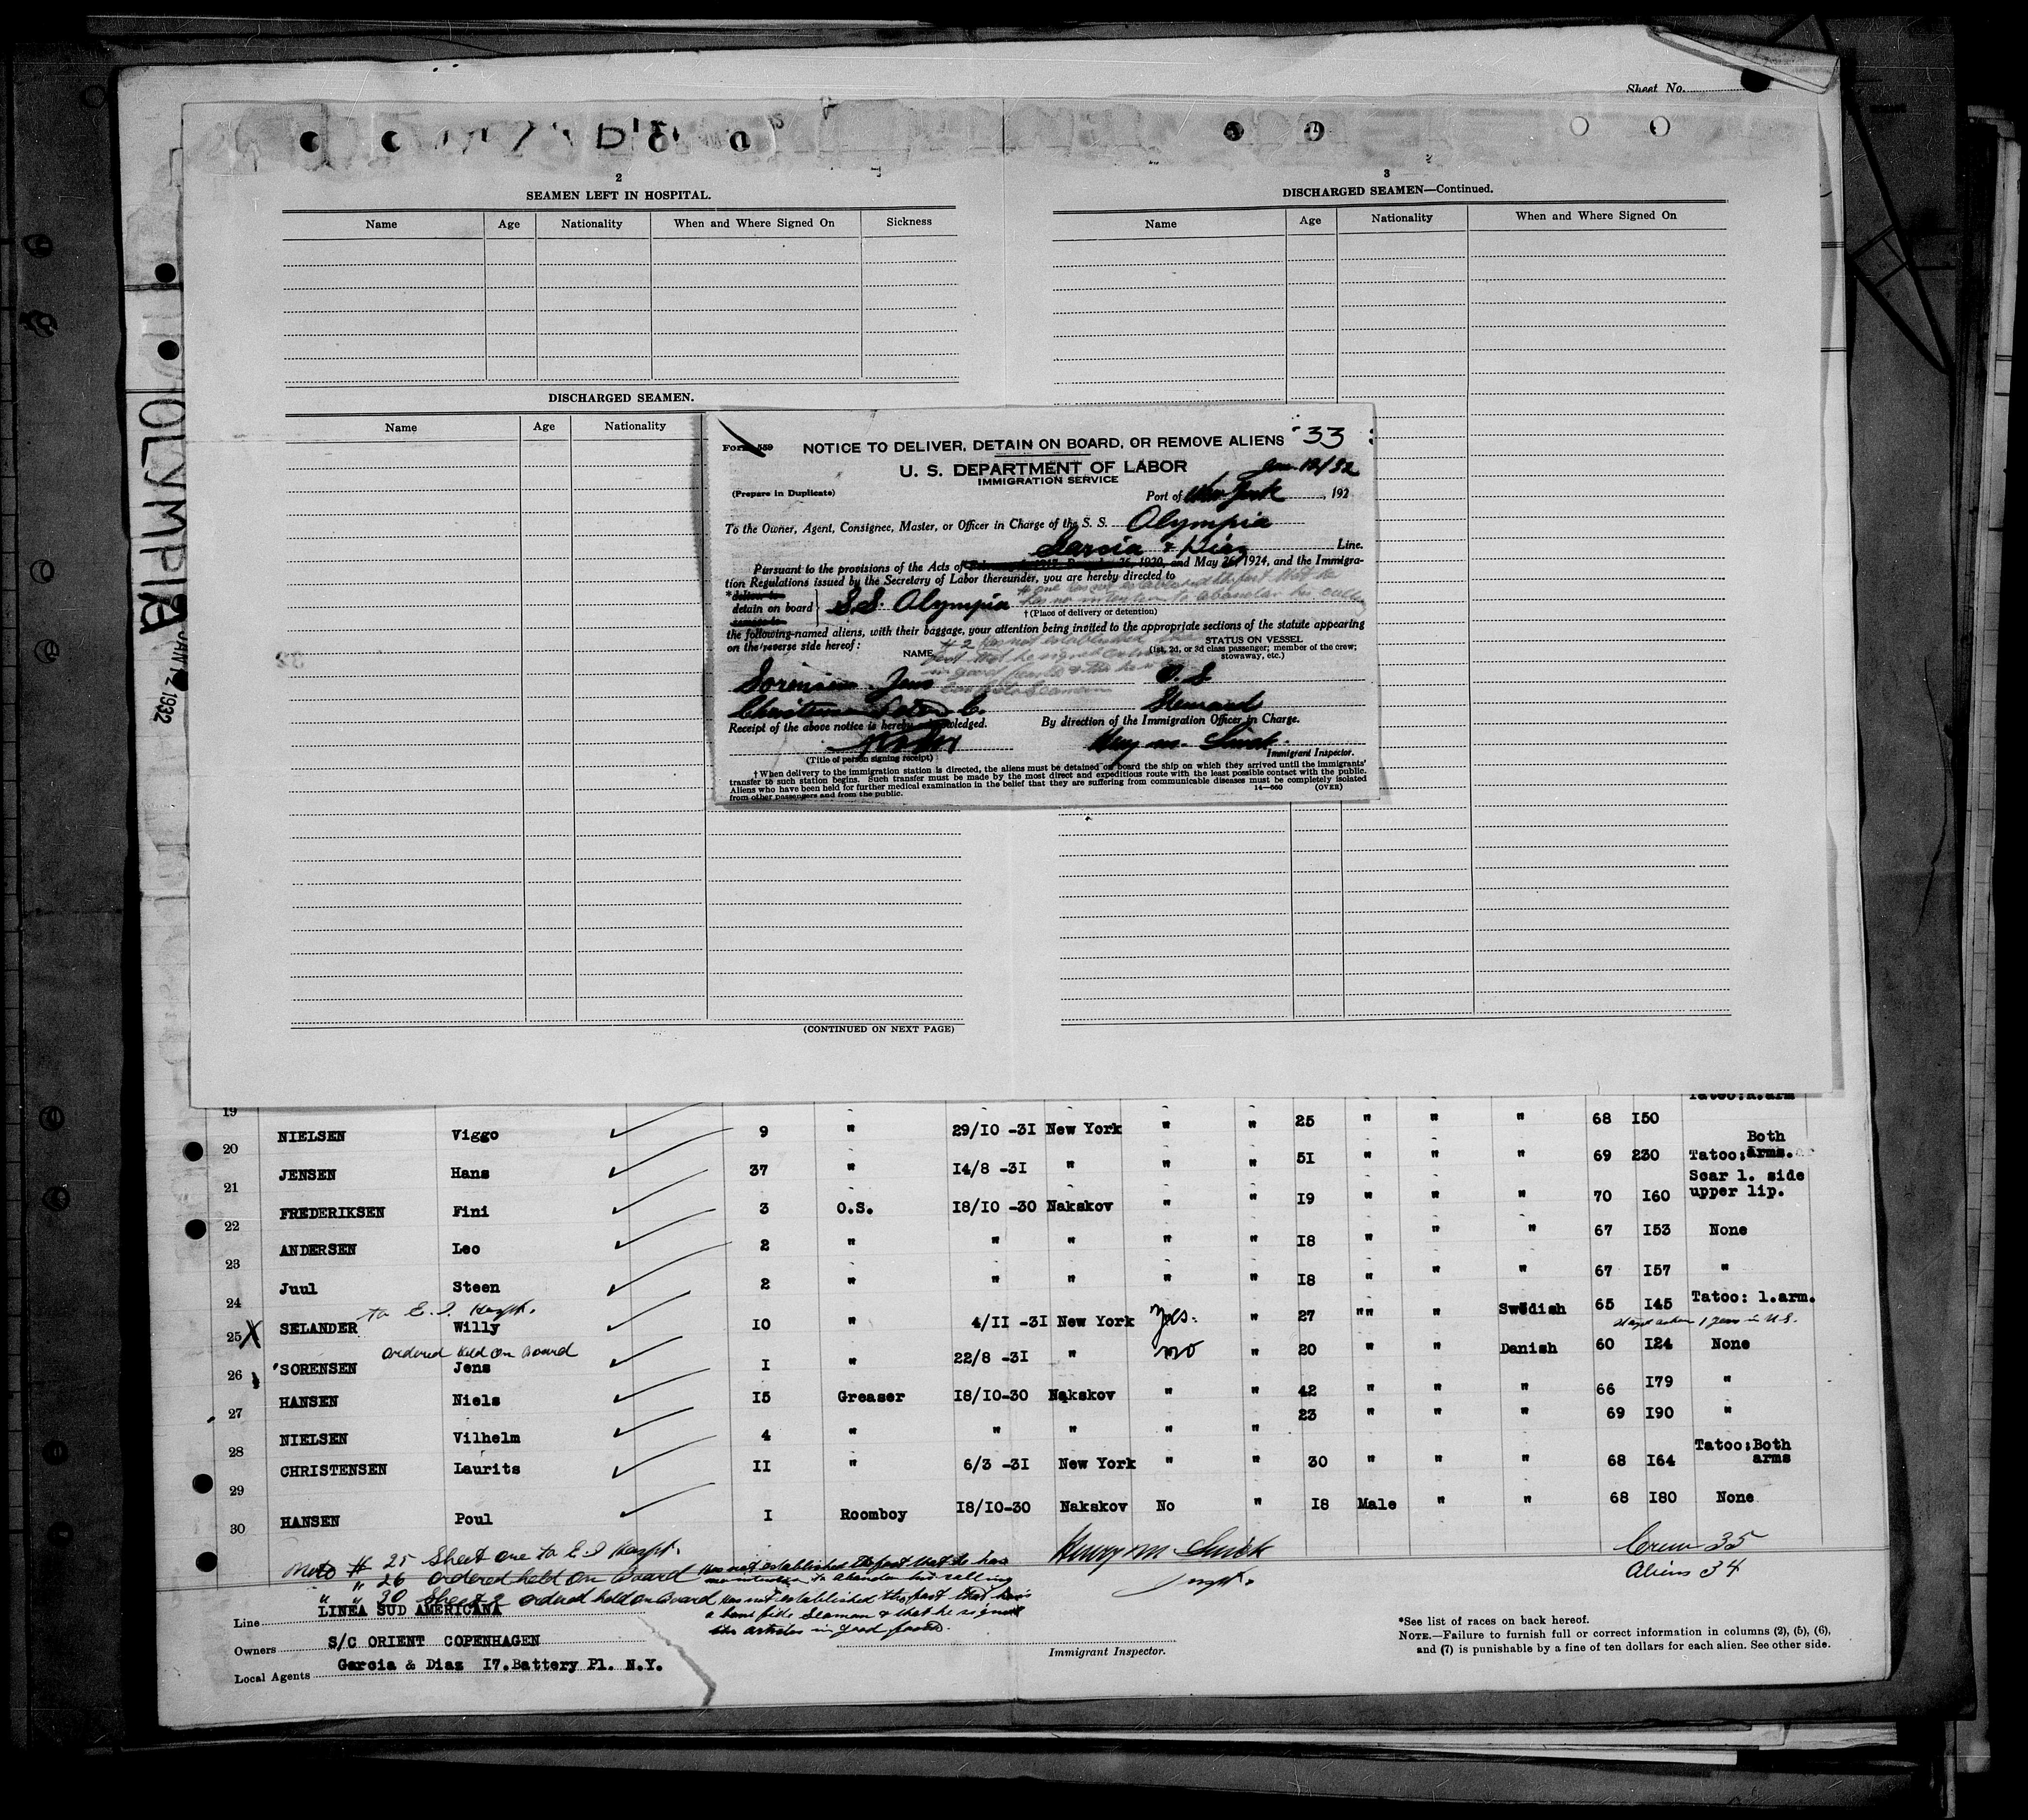 Sheet No.
OLYMPIA
JAN 12 1932
2
SEAMEN LEFT IN HOSPITAL.
Name Age Nationality When and Where Signed On Sickness
DISCHARGED SEAMEN.
Name Age Nationality
(CONTINUED ON NEXT PAGE)
3
DISCHARGED SEAMEN—Continued.
Name Age Nationality When and Where Signed On
Form 559
NOTICE TO DELIVER, DETAIN ON BOARD, OR REMOVE ALIENS 33
U. S. DEPARTMENT OF LABOR
IMMIGRATION SERVICE
Jan. 12/32
(Prepare in Duplicate) Port of New York, 192
To the Owner, Agent, Consignee, Master, or Officer in Charge of the S. S. Olympia
Garcia & Diaz Line.
Pursuant to the provisions of the Acts of and May 26, 1924, and the Immigra-
tion Regulations issued by the Secretary of Labor thereunder, you are hereby directed to
# one has not established the fact that he
*deliver to
detain on board S.S. Olympia has no intention to abandon his calling
remove to †(Place of delivery or detention)
the following-named aliens, with their baggage, your attention being invited to the appropriate sections of the statute appearing
on the reverse side hereof:
# 2 has not established the
NAME STATUS ON VESSEL
(1st, 2d, or 3d class passenger; member of the crew;
stowaway, etc.)
fact that he signed
in good
Sorensen Jens O.S
bona fide Seaman
Christensen C. Steward
Receipt of the above notice is hereby acknowledged. By direction of the Immigration Officer in Charge.
Henry M. Smick
Immigrant Inspector.
(Title of person signing receipt)
†When delivery to the immigration station is directed, the aliens must be detained on board the ship on which they arrived until the immigrants'
transfer to such station begins. Such transfer must be made by the most direct and expeditious route with the least possible contact with the public.
Aliens who have been held for further medical examination in the belief that they are suffering from communicable diseases must be completely isolated
from other passengers and from the public. 14—660 (OVER)
19 Tatoo:R.arm
20 NIELSEN Viggo 9 " 29/10 -31 New York " " 25 " " " 68 150
Both
21 JENSEN Hans 37 " 14/8 -31 " " " 51 " " " 69 230 Tatoo:arms.
Scar l. side
22 FREDERIKSEN Fini 3 O.S. 18/10 -30 Nakskov " " 19 " " " 70 160 upper lip.
23 ANDERSEN Leo 2 " " " " " 18 " " " 67 153 None
24 Juul Steen 2 " " " " " 18 " " " 67 157 "
to E. I. Hospt.
25 X SELANDER Willy 10 " 4/11 -31 New York Yes. " 27 "" " Swedish 65 145 Tatoo: l.arm.
ordered held on Board
26 SORENSEN Jens 1 " 22/8 -31 " no " 20 " " Danish 60 124 None
27 HANSEN Niels 15 Greaser 18/10-30 Nakskov " " 42 " " " 66 179 "
28 NIELSEN Vilhelm 4 " " " " " 23 " " " 69 190 "
Tatoo:Both
29 CHRISTENSEN Laurits 11 " 6/3 -31 New York " " 30 " " " 68 164 arms
30 HANSEN Poul 1 Roomboy 18/10-30 Nakskov No " 18 Male " " 68 180 None
Note # 25 Sheet one to E I Hospt. Henry M Smick Crew 35
" 26 ordered held on Board Has not established the fact that he has Aliens 34
no intention to abandon his calling Inspt.
" " 30 Sheet 2 ordered held on Board has not established the fact that he is
a bona fide Seaman & that he signed
the articles in good faith.
Line LINEA SUD AMERICANA
Owners S/C ORIENT COPENHAGEN
Local Agents Garcia & Diaz 17.Battery Pl. N.Y.
Immigrant Inspector.
*See list of races on back hereof.
NOTE.—Failure to furnish full or correct information in columns (2), (5), (6),
and (7) is punishable by a fine of ten dollars for each alien. See other side.